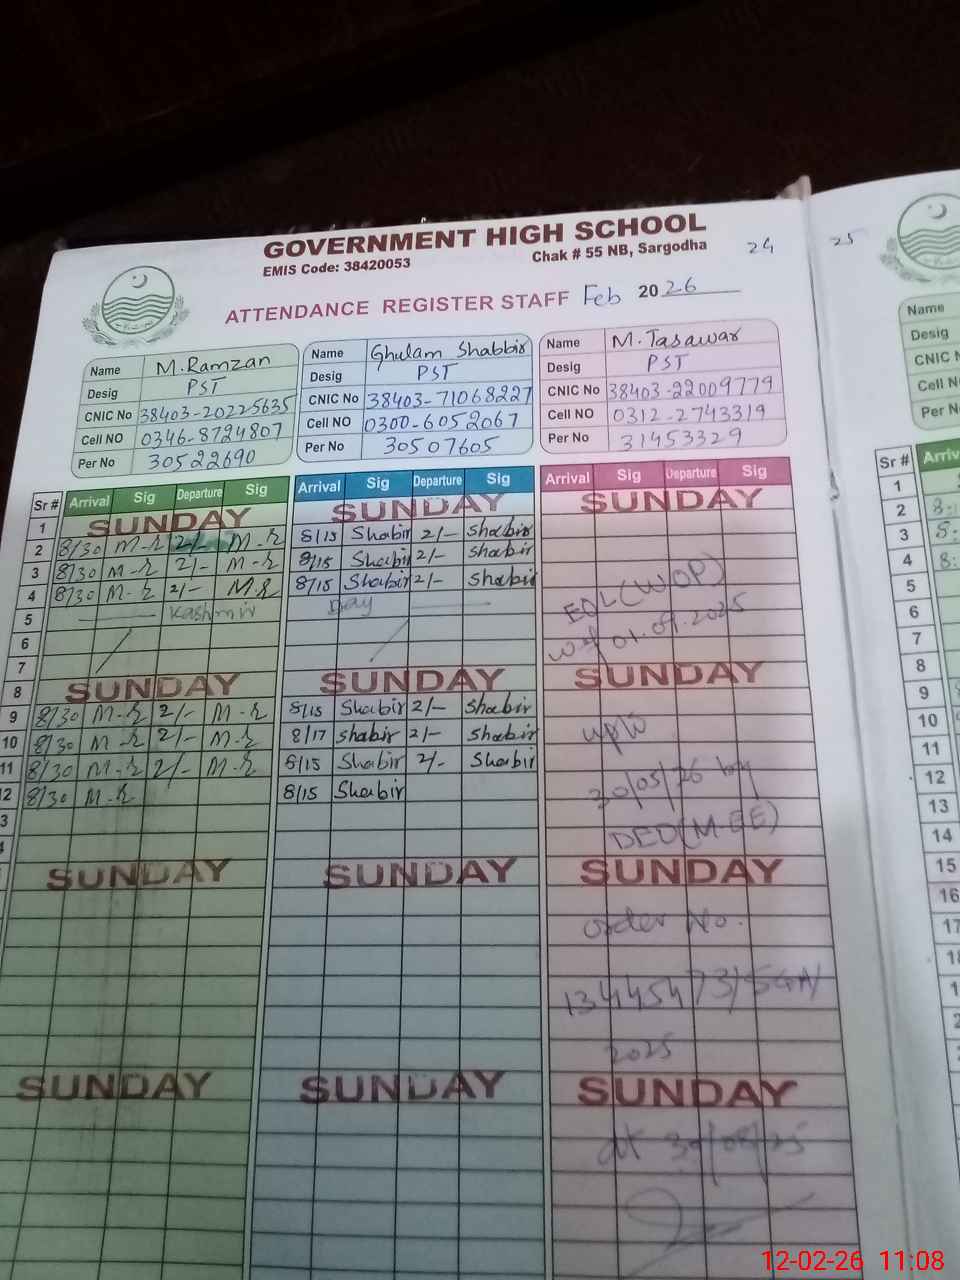 GOVERNMENT HIGH SCHOOL
EMIS Code: 38420053 Chak # 55 NB, Sargodha
24 25
ATTENDANCE REGISTER STAFF Feb 2026
Name M.Ramzan
Desig PST
CNIC No 38403-20225635
Cell NO 0346-8724807
Per No 30522690
Name Ghulam Shabbir
Desig PST
CNIC No 38403-71068227
Cell NO 0300-6052067
Per No 30507605
Name M.Tasawar
Desig PST
CNIC No 38403-22009779
Cell NO 0312-2743319
Per No 31453329
Sr # Arrival Sig Departure Sig
1 SUNDAY
2 8/30 M-R 2/- M-R
3 8/30 M-R 2/- M-R
4 8/30 M-R 2/- M-R
5 Kashmir
6
7
8 SUNDAY
9 8/30 M-R 2/- M-R
10 8/30 M-R 2/- M-R
11 8/30 M-R 2/- M-R
12 8/30 M-R
SUNDAY
SUNDAY
Arrival Sig Departure Sig
SUNDAY
8/15 Shabir 2/- Shabir
8/15 Shabir 2/- Shabir
8/15 Shabir 2/- Shabir
Day
SUNDAY
8/15 Shabir 2/- Shabir
8/17 Shabir 2/- Shabir
8/15 Shabir 2/- Shabir
8/15 Shabir
SUNDAY
SUNDAY
Arrival Sig Departure Sig
SUNDAY
EOL(WOP)
wef 01.09.2025
SUNDAY
upto
30/05/26 by
DEO(M-EE)
SUNDAY
order No.
2025
SUNDAY
dt 30/08/25
Name
Desig
CNIC N
Cell N
Per No
Sr # Arriv
1
2
3
4
5
6
7
8
9
10
11
12
13
14
15
16
17
12-02-26 11:08